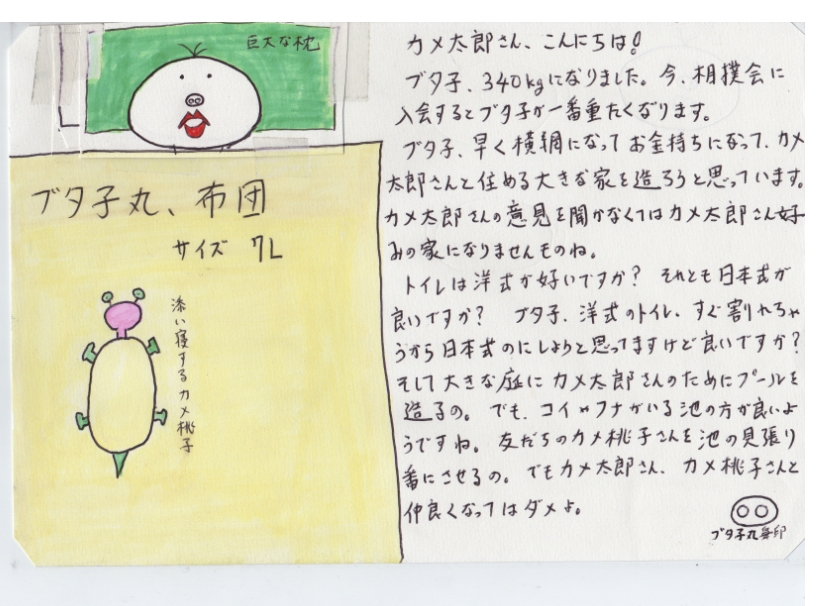 巨大な枕
ブタ子丸、布団
サイズ 7L
添い寝するカメ桃子
カメ太郎さん、こんにちは!
ブタ子、340kgになりました。今、相撲会に
入会するとブタ子が一番重たくなります。
ブタ子、早く横綱になってお金持ちになって、カメ
太郎さんと住める大きな家を造ろうと思っています。
カメ太郎さんの意見を聞かなくてはカメ太郎さん好
みの家になりませんものね。
トイレは洋式が好いですか? それとも日本式が
良いですか? ブタ子、洋式のトイレ、すぐ割れちゃ
うから日本式のにしようと思ってますけど良いですか?
そして大きな庭にカメ太郎さんのためにプールを
造るの。でも、コイやフナがいる池の方が良いよ
うですね。友だちのカメ桃子さんを池の見張り
番にさせるの。でもカメ太郎さん、カメ桃子さんと
仲良くなってはダメよ。
ブタ子丸